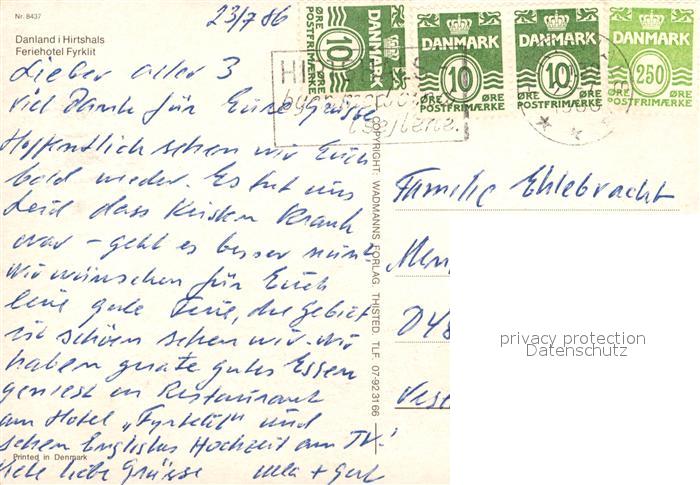 Nr. 8437
23/7 86
Danland i Hirtshals
Feriehotel Fyrklit
Lieber aller 3
viel Dank für Eure Grüsse
Hoffentlich sehen wir Euch
bald wieder. Es tut uns
Leid dass Kirsten Krank
war - geht es besser nun?
wir wünschen für Euch
eine gute Ferie, die Gebiet
ist schön sehen wir. wir
haben gutes Essen
geniest im Restaurant
am Hotel „Fyrklit" und
sehen Englishs Hochzeit am TV!
Printed in Denmark
viele liebe Grüsse ulla + Gert
COPYRIGHT: WADMANNS FORLAG. THISTED. TLF. 07-92 31 66
10
DANMARK
ØRE ØRE
POSTFRIMÆRKE
DANMARK
10
ØRE ØRE
POSTFRIMÆRKE
DANMARK
10
ØRE ØRE
POSTFRIMÆRKE
DANMARK
250
ØRE ØRE
POSTFRIMÆRKE
Familie Ehlebracht
D48
privacy protection
Datenschutz